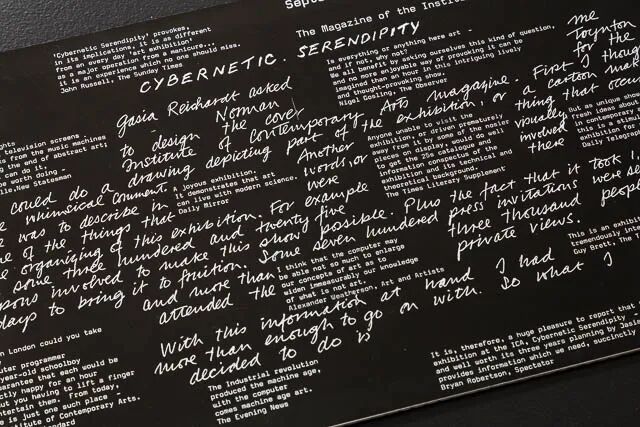 The Magazine of the Instit
'Cybernetic Serendipity' provokes,
in its implications, it is as different
from an every day 'art exhibition'
as a major operation from a manicure...
it is an experience which no one should miss.
John Russell, The Sunday Times
Is everything or anything here art -
and if not, why not?
We all benefit by asking ourselves this kind of question,
and no more enjoyable way of provoking it can be
imagined than an hour in this intriguing lively
and thought-provoking show.
Nigel Gosling, The Observer
CYBERNETIC. SERENDIPITY
Jasia Reichardt asked me
Norman Toynton
to design the cover for the
Institute of Contemporary Arts magazine. First I thou
could do a drawing depicting part of the exhibition, or a carton mak
whimsical comment. Another thing that occu
was to describe in words, or visually
of the things that were involved in
organizing of this exhibition. For example there
some three hundred and twenty five
persons involved to make this show possible. Plus the fact that it took
days to bring it to fruition. Some seven hundred press invitations were se
and more than three thousand peop
attended the private views.
With this information at hand I had
more than enough to go on with. So what I
decided to do is
television screens
from the music machines
the end of abstract art;
can do is
be worth doing -
New Statesman
A joyous exhibition.
It demonstrates that art
can live with modern science.
Daily Mirror
Anyone unable to visit the
exhibition, or driven prematurely
away from it by some of the noisier
pieces on display, would do well
to get the 25s catalogue and
exhibition and its technical and
information both about the
theoretical background.
The Times Literary Supplement
Daily Telegraph
I think that the computer may
be able not so much to enlarge
our concepts of art as to
widen immeasurably our knowledge
of what is not art.
Alexander Weatherson, Art and Artists
This is an exhib
tremendously inte
Guy Brett, The
In London could you take
computer programmer
year-old schoolboy
guarantee that each would be
perfectly happy for an hour
out you having to lift a finger
entertain them. From today,
is just one such place -
Institute of Contemporary Arts.
The Industrial revolution
produced the machine age,
the computer
comes machine age art.
The Evening News
It is, therefore, a huge pleasure to report that
exhibition at the ICA, Cybernetic Serendipity
and well worth its three years planning by Jasi
provides information which we need, succinctly
Bryan Robertson, Spectator